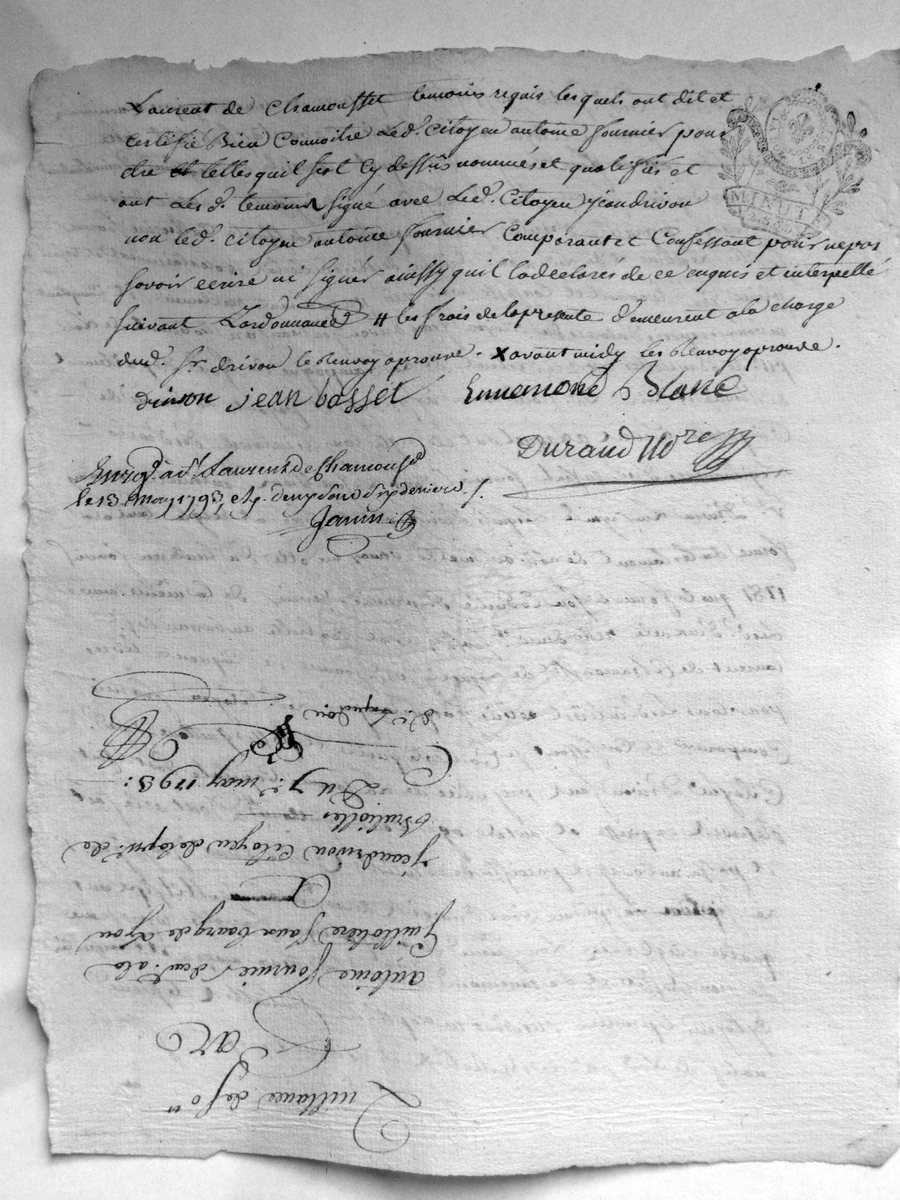 Laurent de Chamousset temoins requis lesquels ont dit et
certifié Bien Connoitre Led. Citoyen antoine fournier pour
être et telles quil sest Cy dessus nommés et qualifiés et
ont Les d. temoins signé avec Led. Citoyen jean drivon
non led. Citoyen antoine fournier Comparant et Confessant pour ne pas
savoir ecrire ni signer ainssy quil la declarés de ce enquis et interpellé
suivant Lordonnance # les frais de la presente demeurent a la charge
dud. sr. drivon le Renvoy aprouvé. X avant midy les Renvoy aprouvé.
drivon jean basset Ennemond Blanc
Durand Nore
Enregé. a St. Laurent de Chamousset
le 13 may 1793, et
Janin
MINUTE
Quittance de 50 ll
Par
antoine fournier a la
Guillotiere faux bourg de Lyon
A
jean drivon Citoyen de la par. de
Brullioles
Du 7 may 1793: